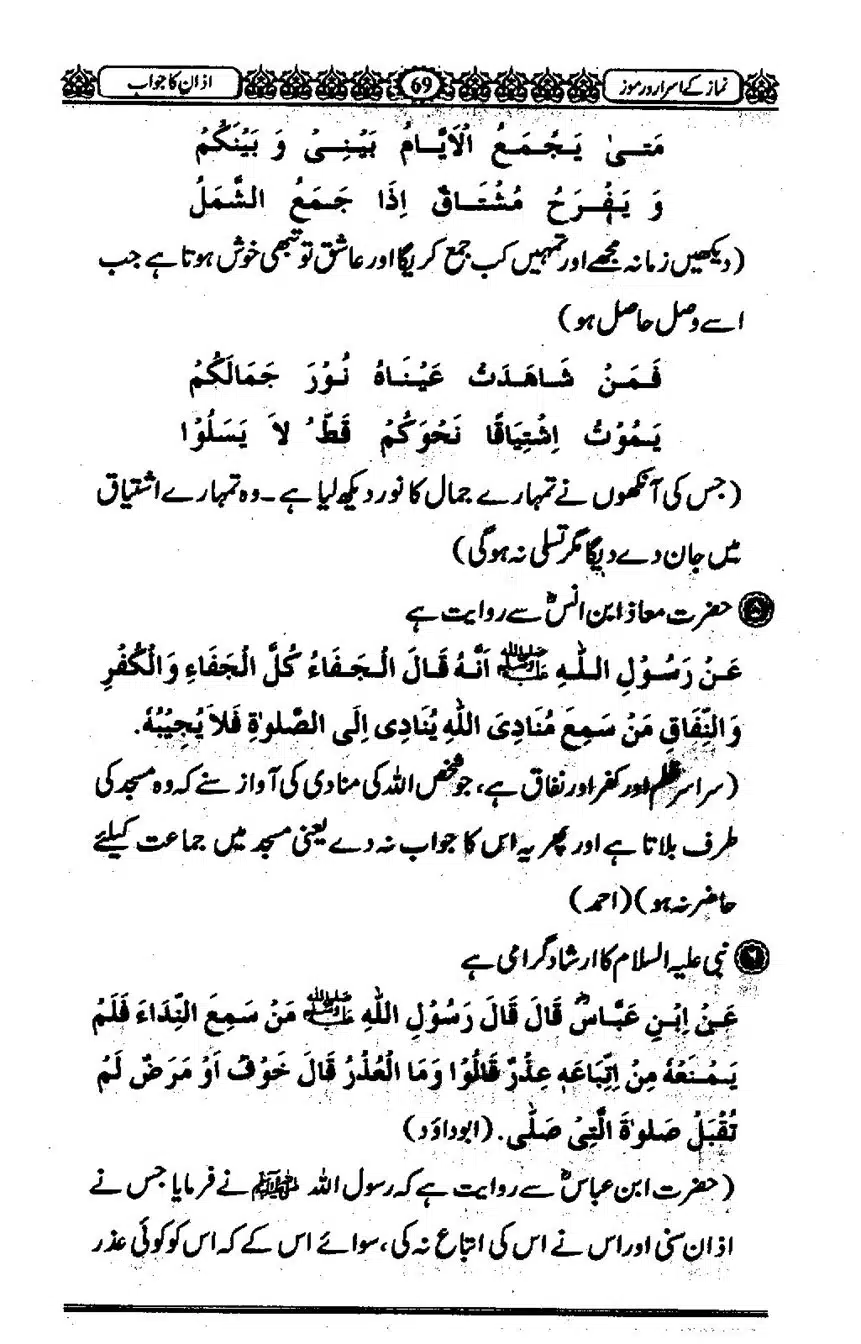 نماز کے اسرار و رموز 69 اذان کا جواب
مَتٰی یَجْمَعُ الْاَیَّامُ بَیْنِیْ وَ بَیْنَکُمْ
وَ یَفْرَحُ مُشْتَاقٌ اِذَا جَمَعُ الشَّمْلُ
(دیکھیں زمانہ مجھے اور تمہیں کب جمع کریگا اور عاشق تو تبھی خوش ہوتا ہے جب
اسے وصل حاصل ہو)
فَمَنْ شَاهَدَتْ عَیْنَاهُ نُوْرَ جَمَالِکُمْ
یَمُوْتُ اِشْتِیَاقًا نَحْوَکُمْ قَطُّ لاَ یَسَلُوْا
(جس کی آنکھوں نے تمہارے جمال کا نور دیکھ لیا ہے۔ وہ تمہارے اشتیاق
میں جان دے دیگا مگر تسلی نہ ہوگی)
حضرت معاذ ابن انسؓ سے روایت ہے
عَنْ رَسُوْلِ اللّٰهِ ﷺ اَنَّهُ قَالَ الْجَفَاءُ کُلَّ الْجَفَاءِ وَالْکُفْرِ
وَالنِّفَاقِ مَنْ سَمِعَ مُنَادِیَ اللّٰهِ یُنَادِی اِلَی الصَّلوٰةِ فَلاَ یُجِیْبُهٗ.
(سراسر ظلم اور کفر اور نفاق ہے، جو شخص اللہ کی منادی کی آواز سنے کہ وہ مسجد کی
طرف بلاتا ہے اور پھر یہ اس کا جواب نہ دے یعنی مسجد میں جماعت کیلئے
حاضر نہ ہو) (احمد)
۶ نبی علیہ السلام کا ارشاد گرامی ہے
عَنْ اِبْنِ عَبَّاسٍؓ قَالَ قَالَ رَسُوْلِ اللّٰهِ ﷺ مَنْ سَمِعَ النِّدَاءَ فَلَمْ
یَمْنَعْهُ مِنْ اِتِّبَاعَهِ عِذْرٌ قَالُوْا وَمَا الْعُذْرُ قَالَ خَوْفٌ اَوْ مَرَضٌ لَمْ
تُقْبَلُ صَلوٰةَ الَّتِیْ صَلّٰی. (ابوداؤد)
(حضرت ابن عباسؓ سے روایت ہے کہ رسول اللہ ﷺ نے فرمایا جس نے
اذان سنی اور اس نے اس کی اتباع نہ کی، سوائے اس کے کہ اس کو کوئی عذر